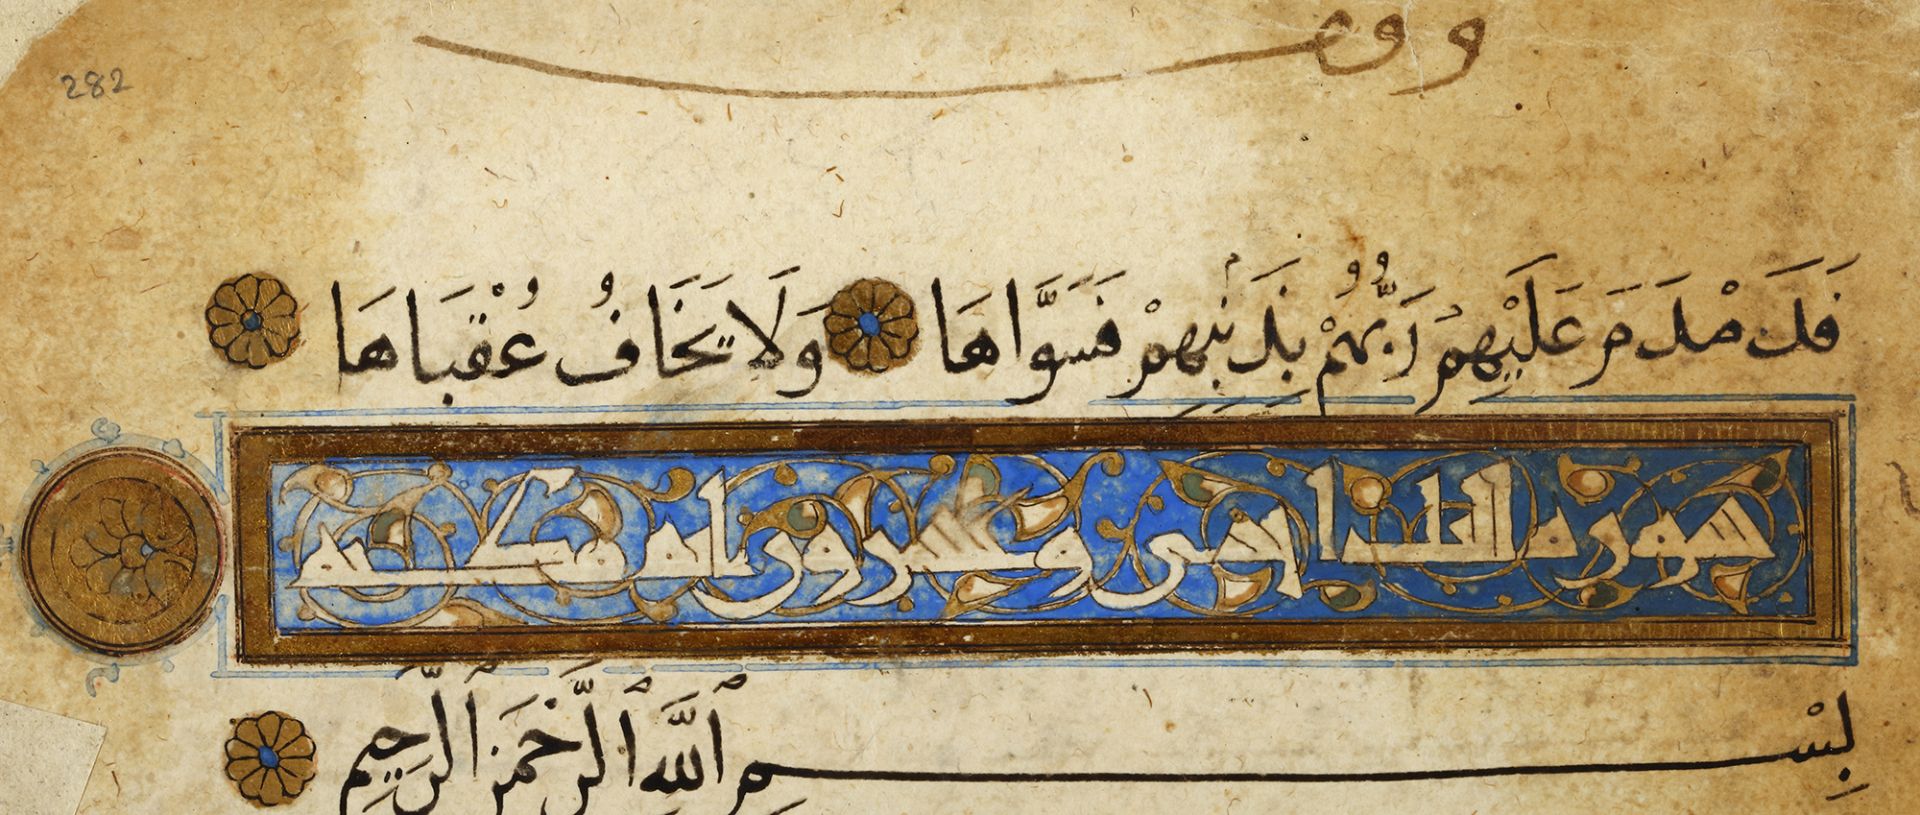 وقف
282
فَدَمْدَمَ عَلَيْهِمْ رَبُّهُمْ بِذَنْبِهِمْ فَسَوَّاهَا وَلَا يَخَافُ عُقْبَاهَا
سورة الليل احدى وعشرون اية مكية
بِسْمِ ٱللَّهِ ٱلرَّحْمَنِ ٱلرَّحِيمِ